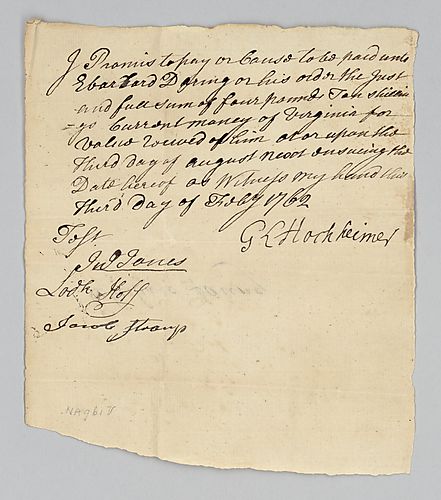 J Promis to pay or Cause to be paid unto
Ebarhard Doring or his order the Just
and full sum of four pounds Ten shillin
=gs Current money of Virginia for
Value Receved of him at or upon the
Third Day of august next ensueing the
Date hereof as Witness my hand this
Third Day of Feby 1762
Test
G L Hochheimer
Jno Jones
Lodk Hoff
Jacob Stramp